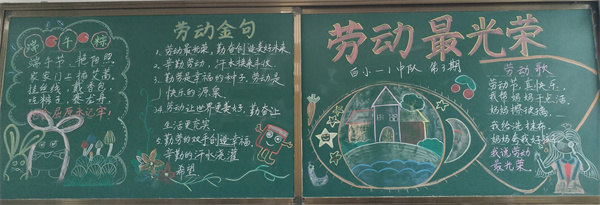 端午粽
端午节,艳阳照
家家门上插艾蒿
挂丝线,戴香包
吃粽子,赛龙舟
屈原永记牢!
劳动金句
1、劳动最光荣,勤奋创造美好未来
2、辛勤劳动,汗水换来丰收
3、勤劳是幸福的种子,劳动是
快乐的源泉
4、劳动让世界更美好,勤奋让
生活更充实
5、勤劳的双手创造幸福,
辛勤的汗水浇灌
希望
劳动最光荣
西小一1中队 第3期
劳动歌
劳动节,真快乐,
我帮妈妈干大活,
妈妈擦玻璃,
我给洗抹布,
妈妈夸我好孩子
我说劳动
最光荣